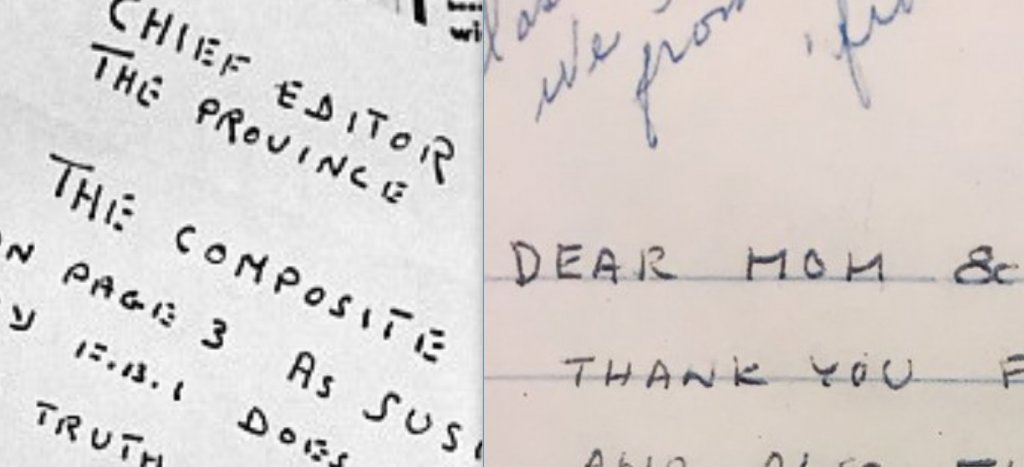 wi
CHIEF EDITOR
THE PROVINCE
THE COMPOSITE
ON PAGE 3 AS SUS
Y F.B.I DOES
TRUTH
las
we from fr
DEAR MOM &
THANK YOU F
AND ALSO